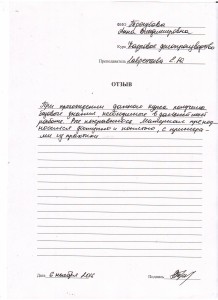 ФИО
Анна Владимировна
Курс Кадровое делопроизводство
Преподаватель
ОТЗЫВ
При прохождении данного курса получила
базовые знания необходимые в дальнейшей
работе. Все понравилось. Материал препод-
носился доступно и понятно, с примера-
ми из практики
Дата 6 ноября
Подпись